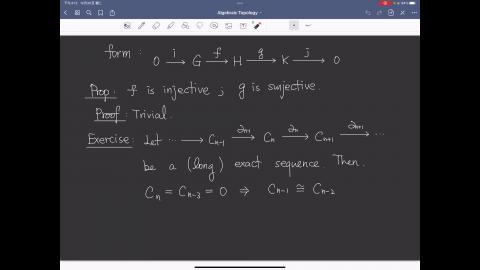 Algebraic Topology
form : 0 \xrightarrow{i} G \xrightarrow{f} H \xrightarrow{g} K \xrightarrow{j} 0
Prop : f is injective ; g is surjective.
Proof : Trivial.
Exercise : Let ⋯ → C_{n-1} \xrightarrow{∂_{n-1}} C_n \xrightarrow{∂_n} C_{n+1} \xrightarrow{∂_{n+1}} ⋯
be a (long) exact sequence. Then.
C_n = C_{n-3} = 0 ⇒ C_{n-1} ≅ C_{n-2}